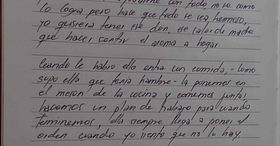 lo logra pero hace que todo se vea hermoso,
yo quisiera tener ese don de saber de madre
que hacer, sentir el aroma a hogar.
Cuando le hablo ella entra con comida, como
supo ella que tenía hambre - la ponemos en
el meson de la cocina y comemos juntas,
hacemos un plan de trabajo para cuando
terminemos ella siempre llega a poner el
orden cuando yo siento que no lo hay.